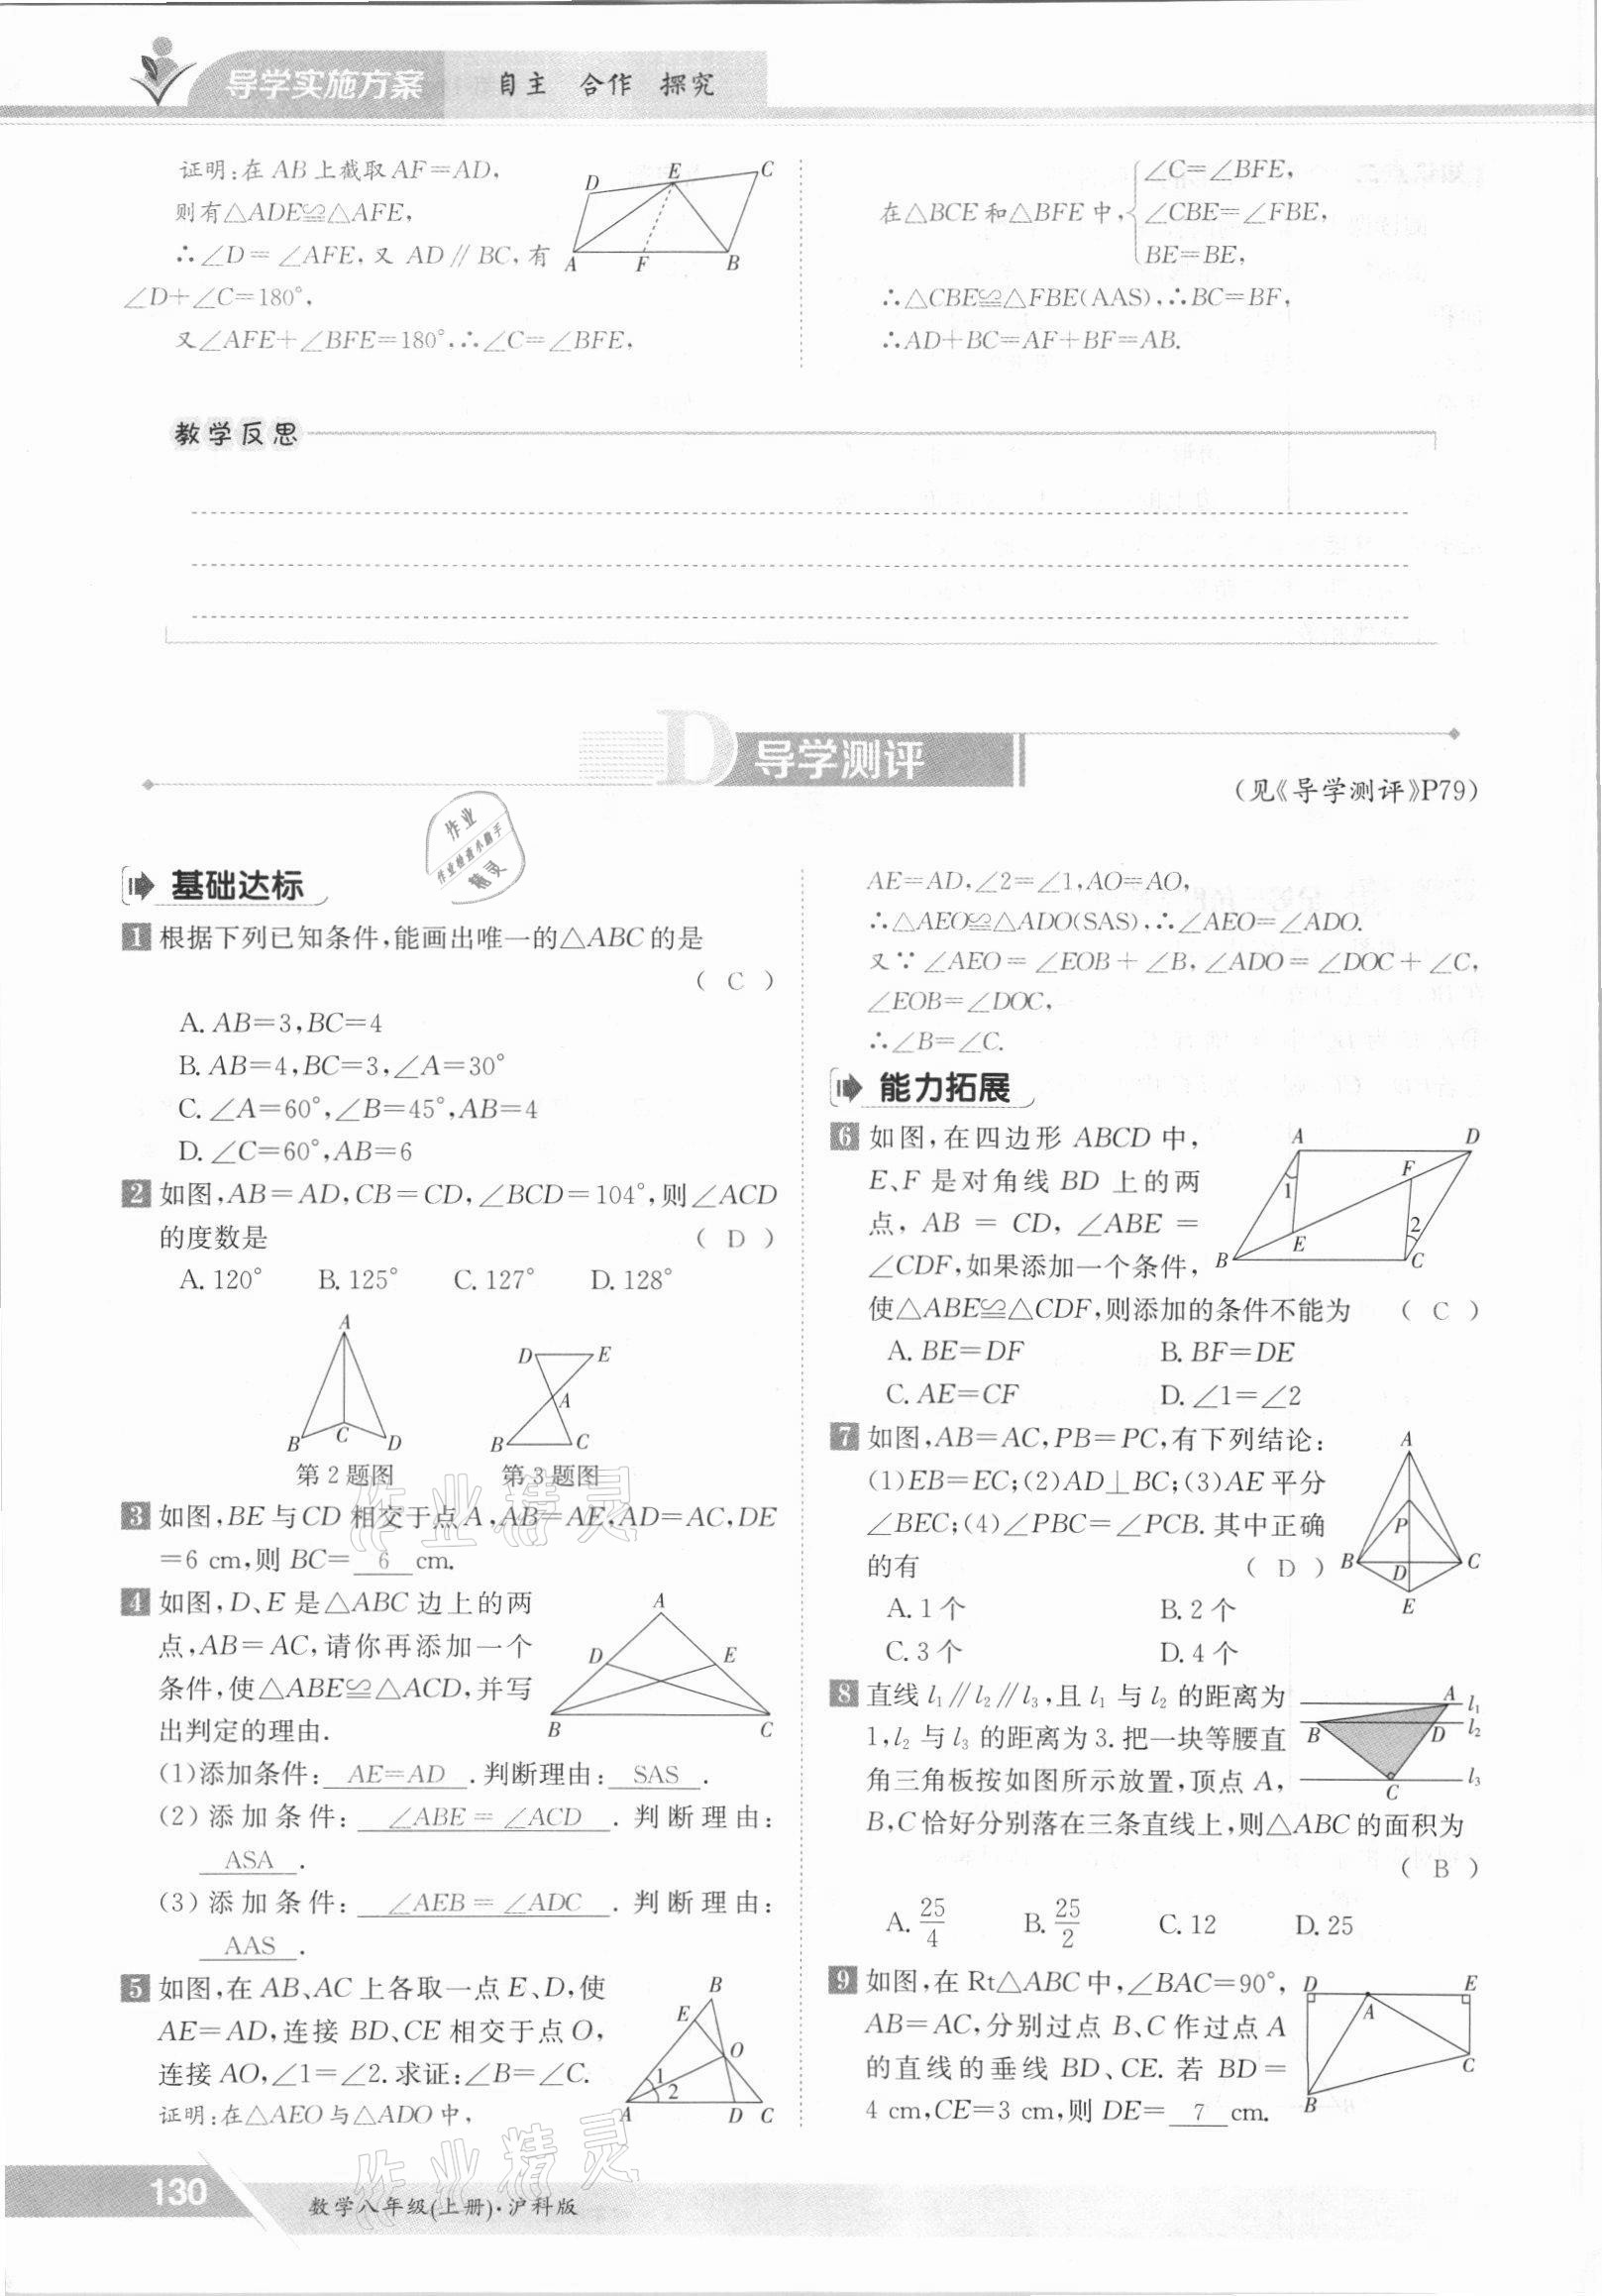 导学实施方案 自主 合作 探究
证明:在 AB 上截取 AF=AD,
则有△ADE≌△AFE,
∴∠D=∠AFE,又 AD∥BC,有
∠D+∠C=180°,
又∠AFE+∠BFE=180°,∴∠C=∠BFE,
D E C
A F B
∠C=∠BFE,
在△BCE 和△BFE 中,{∠CBE=∠FBE,
BE=BE,
∴△CBE≌△FBE(AAS),∴BC=BF,
∴AD+BC=AF+BF=AB.
教学反思
D 导学测评
(见《导学测评》P79)
基础达标
1 根据下列已知条件,能画出唯一的△ABC 的是
( C )
A. AB=3,BC=4
B. AB=4,BC=3,∠A=30°
C. ∠A=60°,∠B=45°,AB=4
D. ∠C=60°,AB=6
2 如图,AB=AD,CB=CD,∠BCD=104°,则∠ACD
的度数是 ( D )
A. 120° B. 125° C. 127° D. 128°
A
B C D
D E
A
B C
第 2 题图 第 3 题图
3 如图,BE 与 CD 相交于点 A,AB=AE,AD=AC,DE
=6 cm,则 BC= 6 cm.
4 如图,D、E 是△ABC 边上的两
点,AB=AC,请你再添加一个
条件,使△ABE≌△ACD,并写
出判定的理由.
A
D E
B C
(1)添加条件: AE=AD .判断理由: SAS .
(2)添加条件: ∠ABE=∠ACD .判断理由:
ASA .
(3)添加条件: ∠AEB=∠ADC .判断理由:
AAS .
5 如图,在 AB、AC 上各取一点 E、D,使
AE=AD,连接 BD、CE 相交于点 O,
连接 AO,∠1=∠2.求证:∠B=∠C.
证明:在△AEO 与△ADO 中,
B
E
O
1
2
A D C
AE=AD,∠2=∠1,AO=AO,
∴△AEO≌△ADO(SAS),∴∠AEO=∠ADO.
又∵∠AEO=∠EOB+∠B,∠ADO=∠DOC+∠C,
∠EOB=∠DOC,
∴∠B=∠C.
能力拓展
6 如图,在四边形 ABCD 中,
E、F 是对角线 BD 上的两
点,AB=CD,∠ABE=
∠CDF,如果添加一个条件,
使△ABE≌△CDF,则添加的条件不能为 ( C )
A D
F
1
2
E
B C
A. BE=DF B. BF=DE
C. AE=CF D. ∠1=∠2
7 如图,AB=AC,PB=PC,有下列结论:
(1)EB=EC;(2)AD⊥BC;(3)AE 平分
∠BEC;(4)∠PBC=∠PCB. 其中正确
的有 ( D )
A
P
B C
D
E
A. 1 个 B. 2 个
C. 3 个 D. 4 个
8 直线 l₁∥l₂∥l₃,且 l₁ 与 l₂ 的距离为
1,l₂ 与 l₃ 的距离为 3. 把一块等腰直
角三角板按如图所示放置,顶点 A,
B,C 恰好分别落在三条直线上,则△ABC 的面积为
( B )
A l₁
B D l₂
C l₃
A. 25/4 B. 25/2 C. 12 D. 25
9 如图,在 Rt△ABC 中,∠BAC=90°,
AB=AC,分别过点 B、C 作过点 A
的直线的垂线 BD、CE. 若 BD=
4 cm,CE=3 cm,则 DE= 7 cm.
D E
A
C
B
130
数学八年级(上册)·沪科版
作业
作业检查小助手
精灵
作业精灵
作业精灵